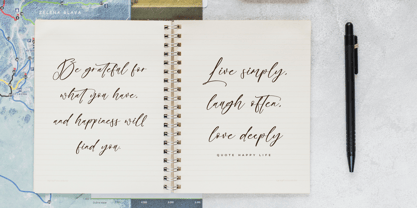 SELENA ALANA
Be grateful for
what you have,
and happiness will
find you.
Live simply,
laugh often,
love deeply
QUOTE HAPPY LIFE